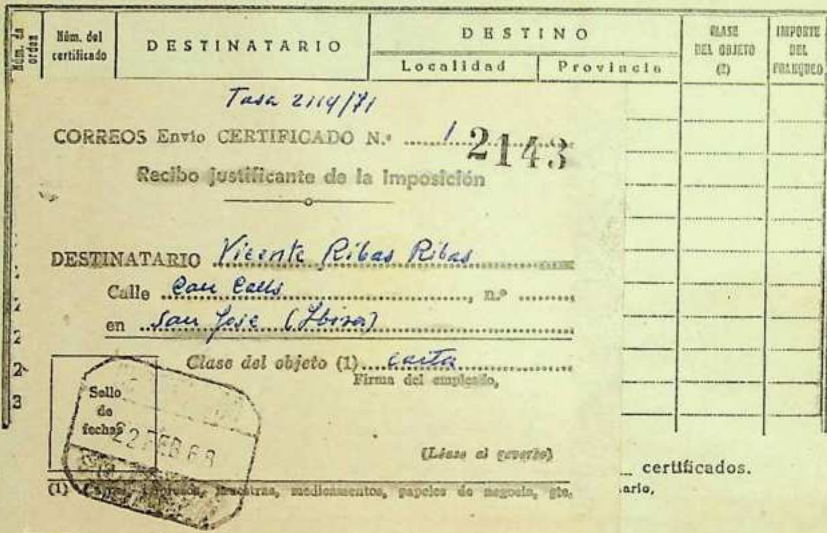 Núm. de orden
Núm. del certificado
DESTINATARIO
DESTINO
Localidad Provincia
CLASE DEL OBJETO (2)
IMPORTE DEL FRANQUEO
Tasa 2114/71
CORREOS Envío CERTIFICADO N.º 1 2143
Recibo justificante de la Imposición
DESTINATARIO Vicente Ribas Ribas
Calle Can Calls, n.º
en San José (Ibiza)
Clase del objeto (1) carta
Firma del empleado,
Sello
de
fechas
22 FEB 68
(Léase al reverso)
(1) Cartas, impresos, muestras, medicamentos, papeles de negocio, etc.
2
2
2
2
3
certificados.
ario,